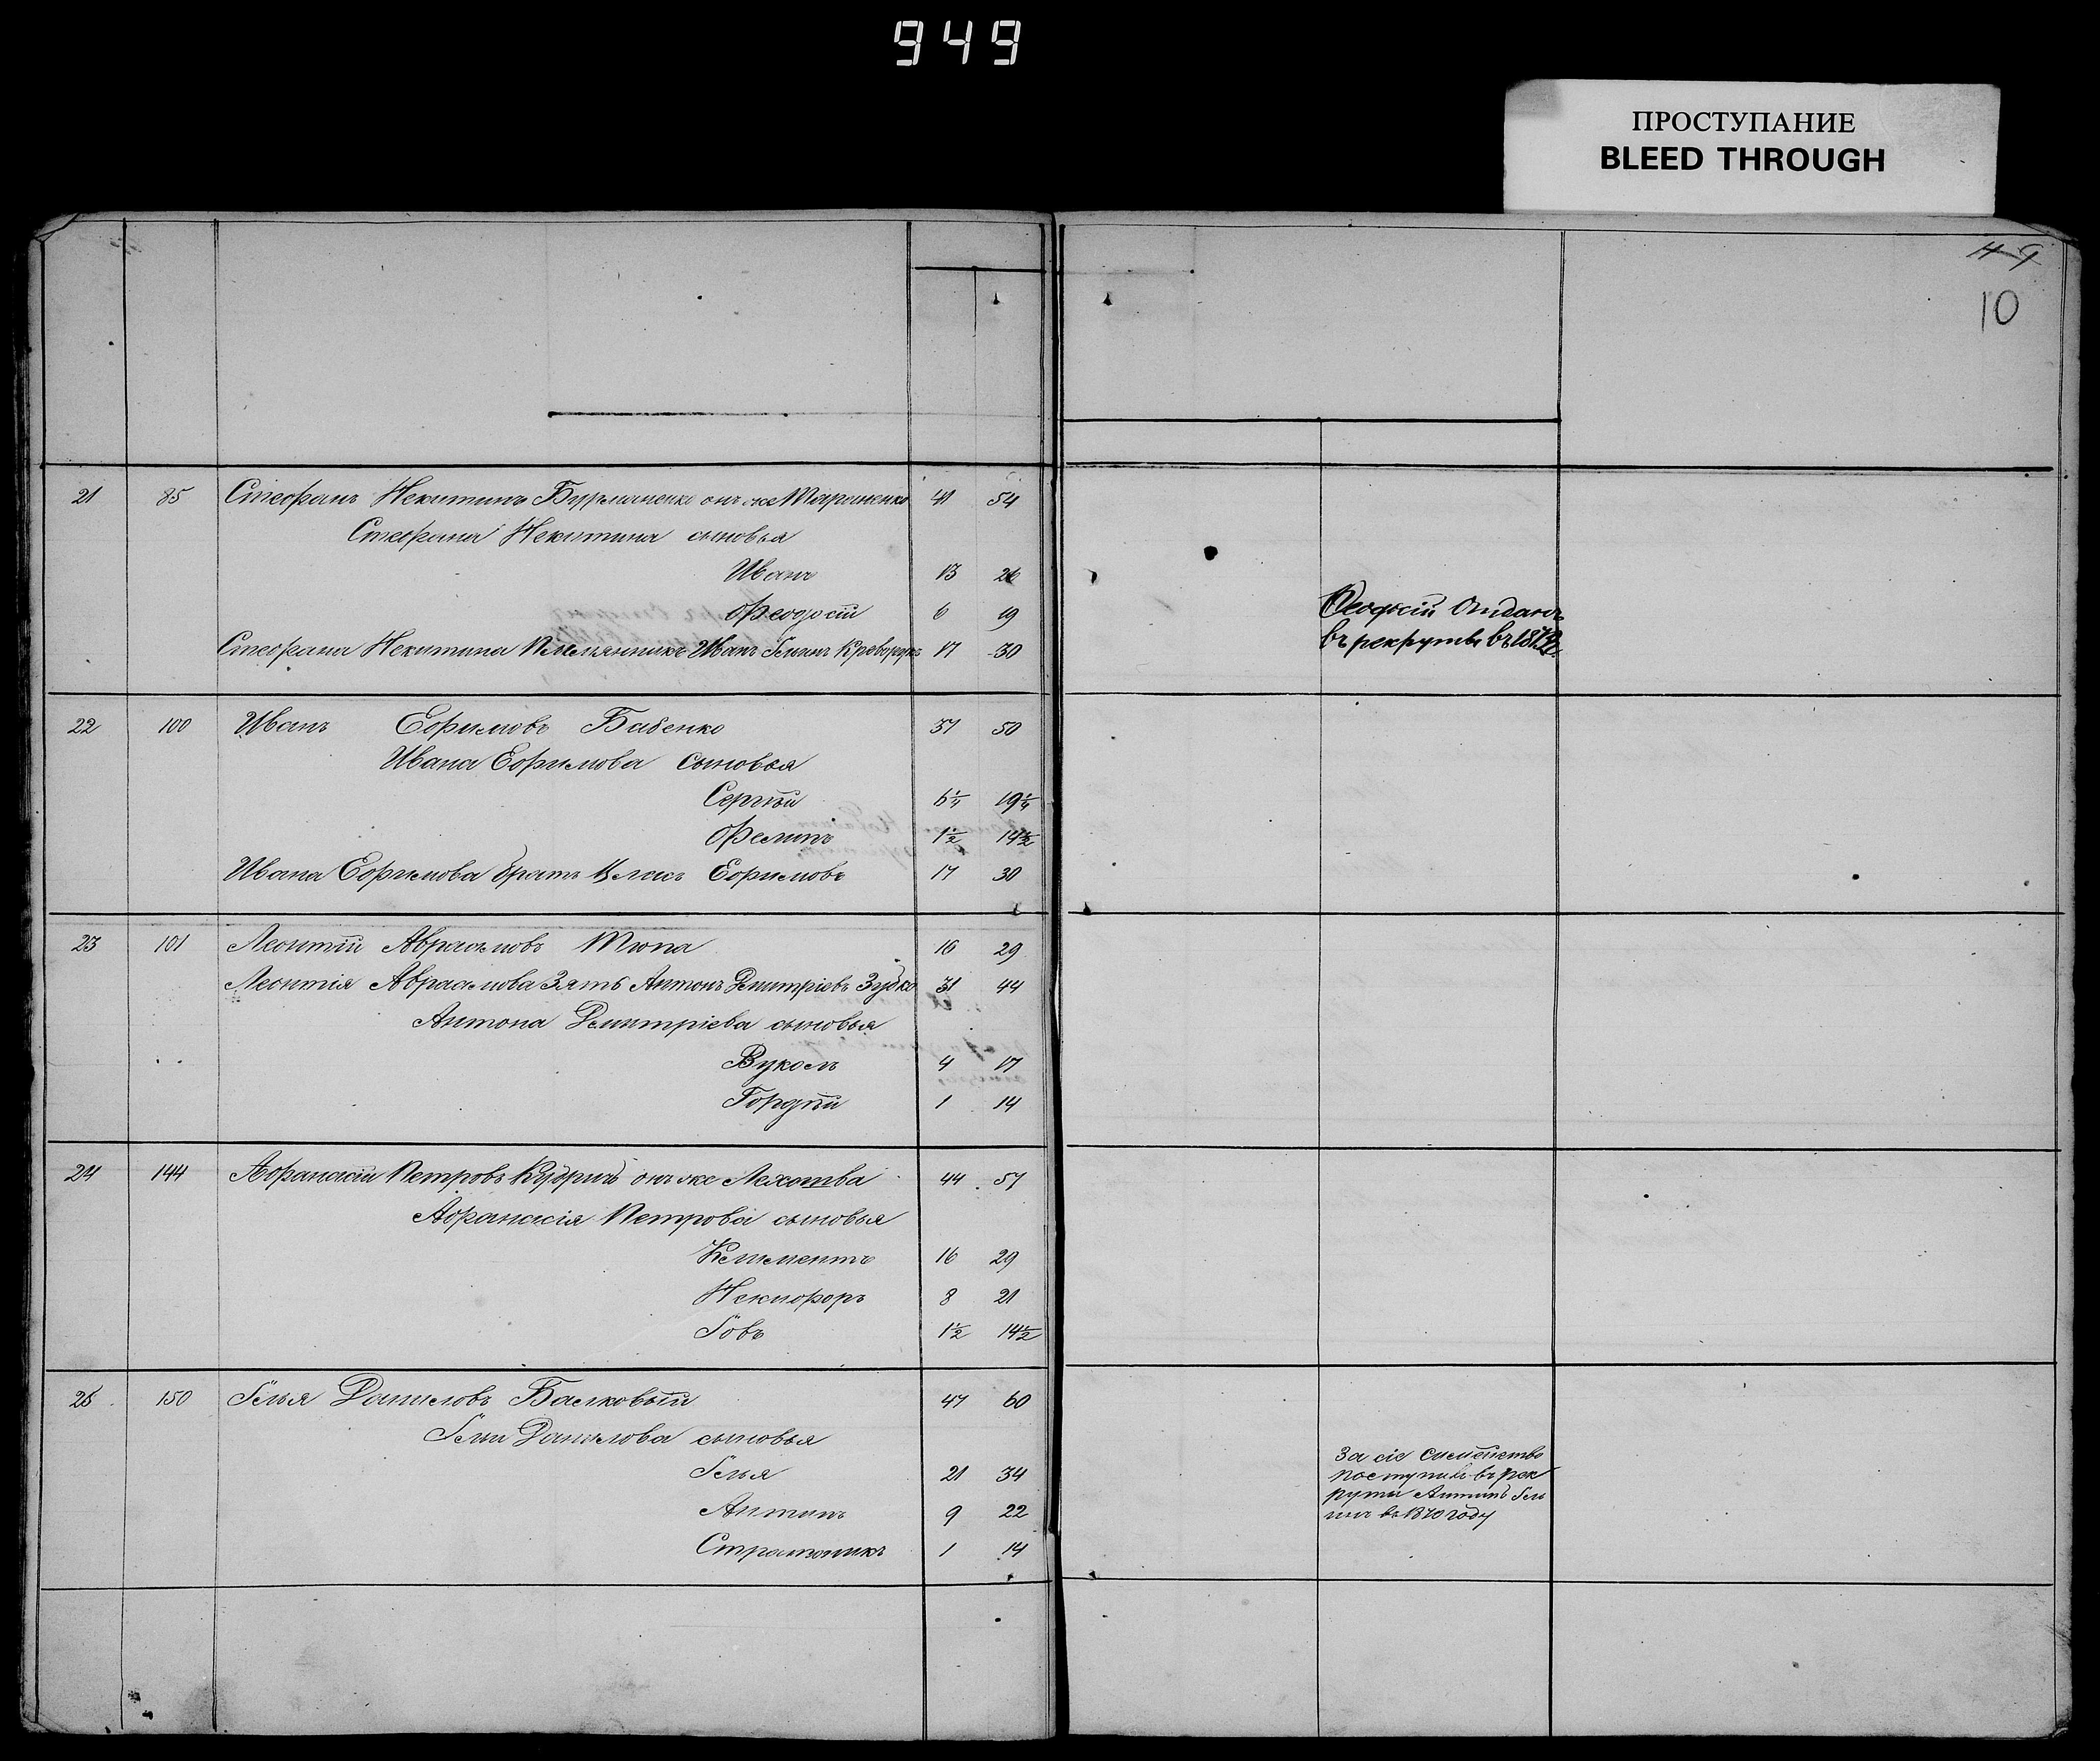 949
ПРОСТУПАНИЕ
BLEED THROUGH
49
10
21 85 Стефанъ Некитинъ Бурлаченко онъ же Тараненко 41 54
Стефана Некитина сыновья
Иванъ 13 26
Феодосій 6 19
Феодосій Отданъ
въ рекруты въ 1872
Стефана Некитина Племянникъ Иванъ Ильинъ 17 30
22 100 Иванъ Ефимовъ Бабенко 37 50
Ивана Ефимова сыновья
Сергѣй 6¼ 19¼
Филипъ 1½ 14½
Ивана Ефимова братъ Власъ Ефимовъ 17 30
23 101 Леонтій Авраамовъ Тюпа 16 29
Леонтія Авраамова Зять Антонъ Дмитріевъ Зубко 31 44
Антона Дмитріева сыновья
Вуколъ 4 17
Гордѣй 1 14
24 144 Афанасій Петровъ Кудринъ онъ же 44 57
Афанасія Петрова сыновья
Климентъ 16 29
Некифоръ 8 21
Іовъ 1½ 14½
25 150 Илья Даниловъ Балковый 47 60
Ильи Данилова сыновья
Илья 21 34
Антипъ 9 22
Стратоникъ 1 14
За сіе Сѣмейство
поступилъ въ рек
руты Антипъ Иль
инъ въ 1870 году